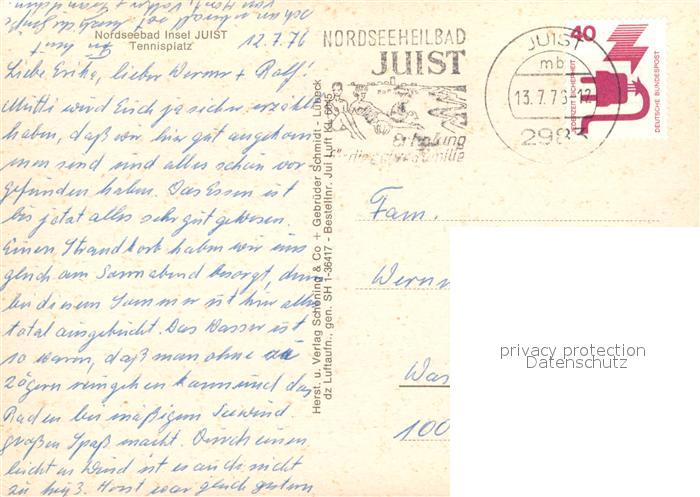 Nordseebad Insel JUIST
Tennisplatz
12.7.76
Liebe Erika, lieber Werner + Rolf!
Mutti wird Euch ja sicher erzählt
haben, daß wir hier gut angekom
men sind und alles schön vor
gefunden haben. Das Essen ist
bis jetzt alles sehr gut gewesen.
Einen Strandkorb haben wir uns
gleich am Sonnabend besorgt, denn
bei diesem Sommer ist hier alles
total ausgebucht. Das Wasser ist
so warm, daß man ohne zu
zögern reingehen kann und das
Baden bei mäßigem Seewind
großen Spaß macht. Durch einen
leichten Wind ist es auch nicht
zu heiß. Horst war gleich gestern
Herst. u. Verlag Schöning & Co + Gebrüder Schmidt - Lübeck
dz Luftaufn., gen. SH 1-36417 - Bestellnr. Jui Luft
NORDSEEHEILBAD
JUIST
Erholung
für die ganze Familie
JUIST
mb
13.7.76-12
2983
40
JEDERZEIT SICHERHEIT
DEUTSCHE BUNDESPOST
Fam.
Wern
Was
100
privacy protection
Datenschutz